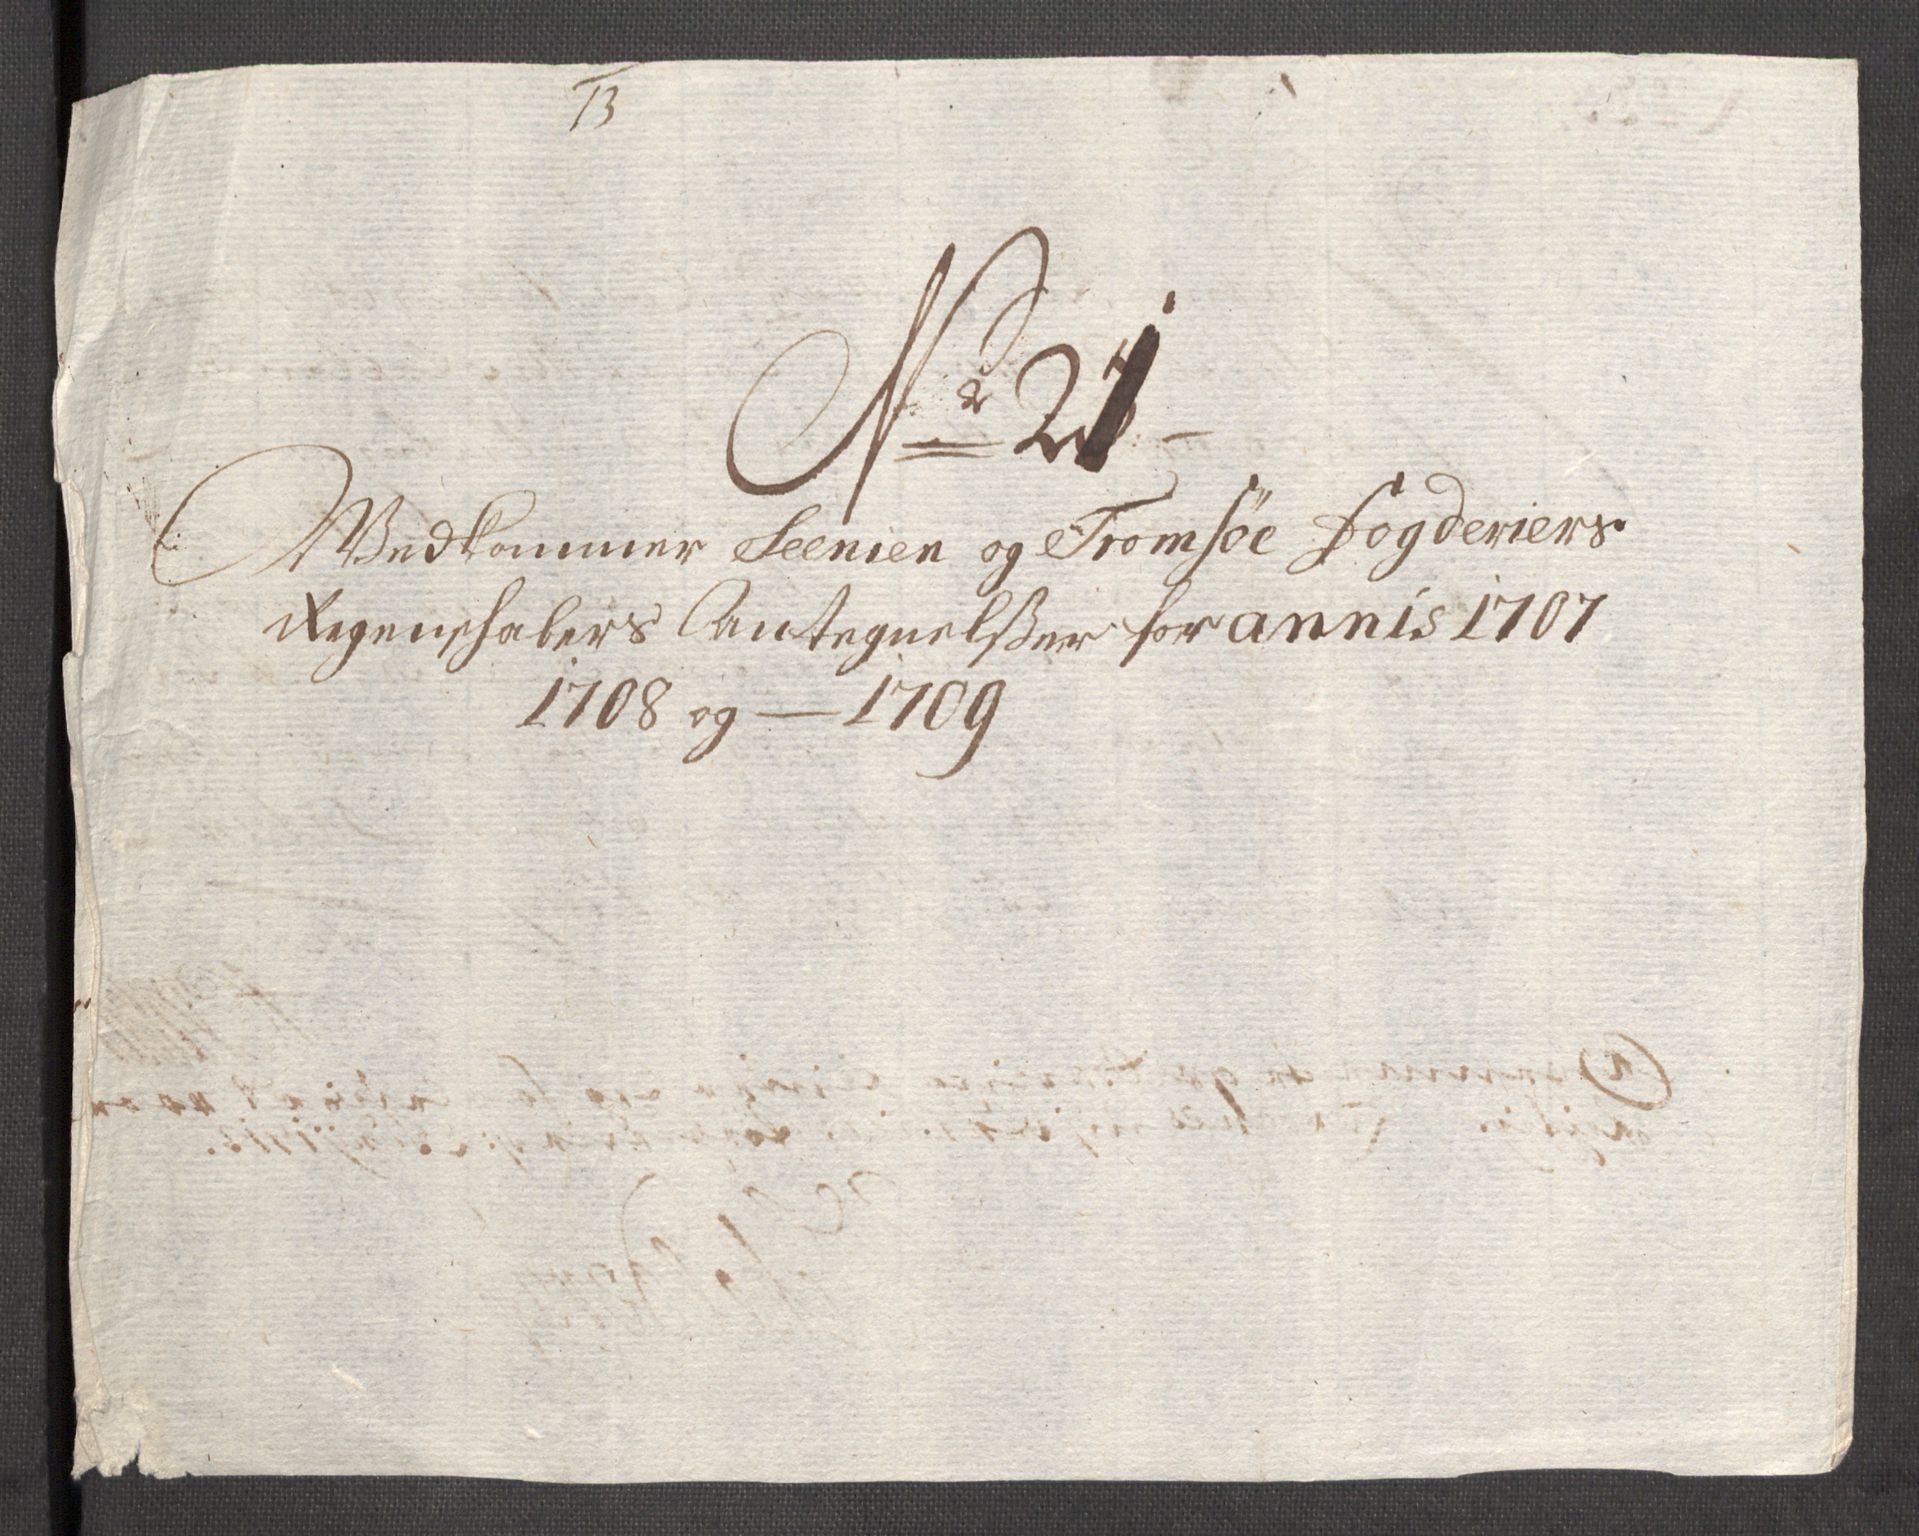 No 21
Vedkommer Seenien og Tromsøe fogderiers
Regenshabers Antegnelsser for annis 1707
1708 og — 1709